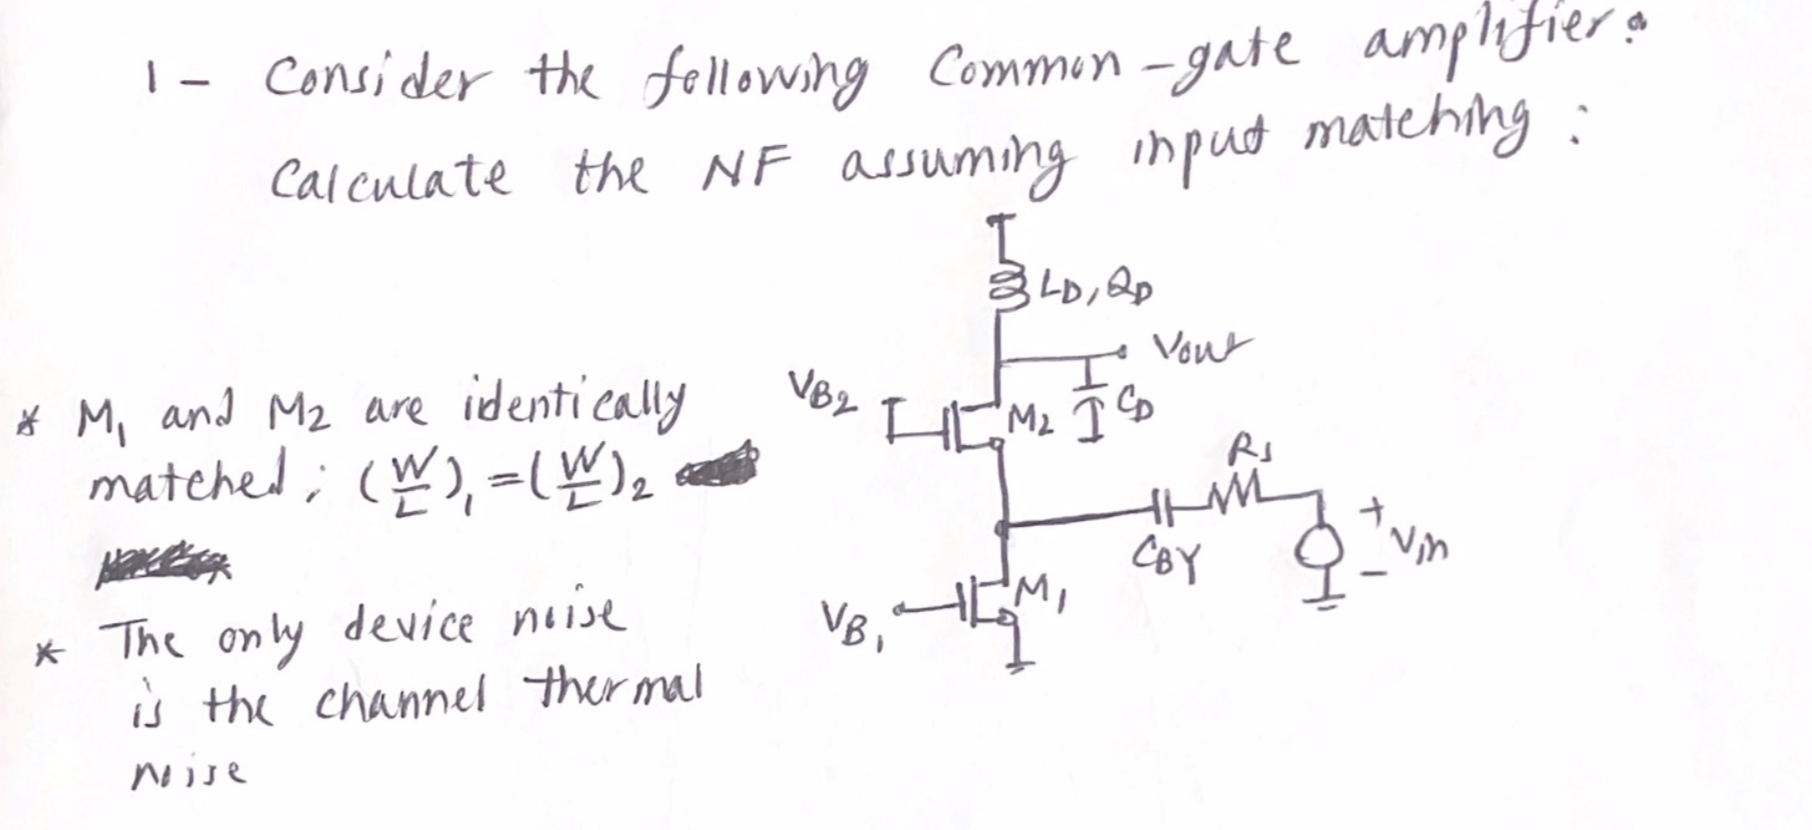 1 - Consider the following Common-gate amplifier.
Calculate the NF assuming input matching :
LD, QD
Vout
VB2
M2
CD
* M1 and M2 are identically
matched ; (W/L)1 = (W/L)2
Rs
CBY
+
Vin
-
M1
VB1
* The only device noise
is the channel thermal
noise